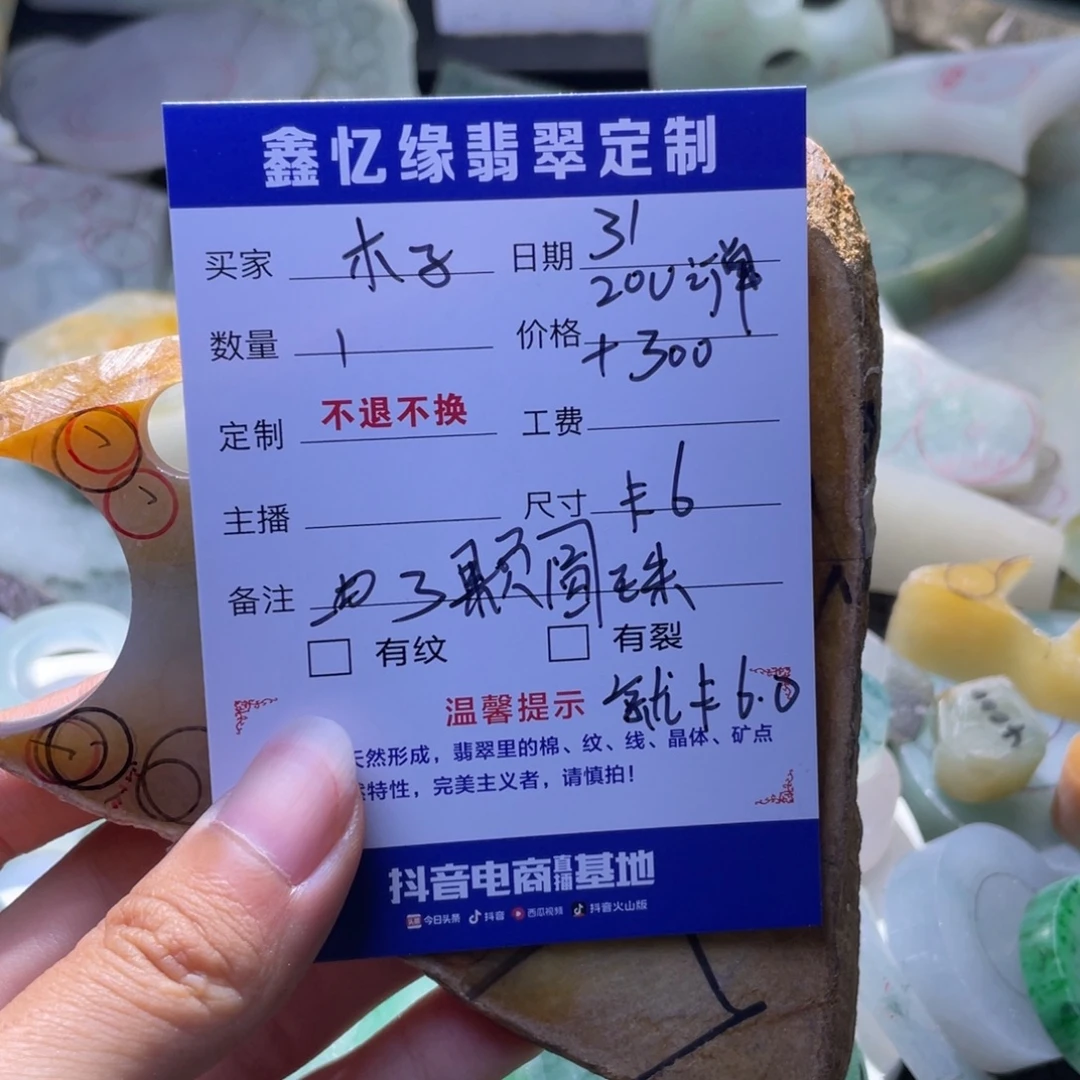 鑫忆缘翡翠定制
买家 木子 日期 31
数量 1 价格 200订单
+300
定制 不退不换 工费
主播 尺寸 卡6
备注 3颗圆珠
有纹 有裂
温馨提示 就卡6.0
天然形成，翡翠里的棉、纹、线、晶体、矿点
特性，完美主义者，请慎拍！
抖音电商直播基地
今日头条 抖音 西瓜视频 抖音火山版